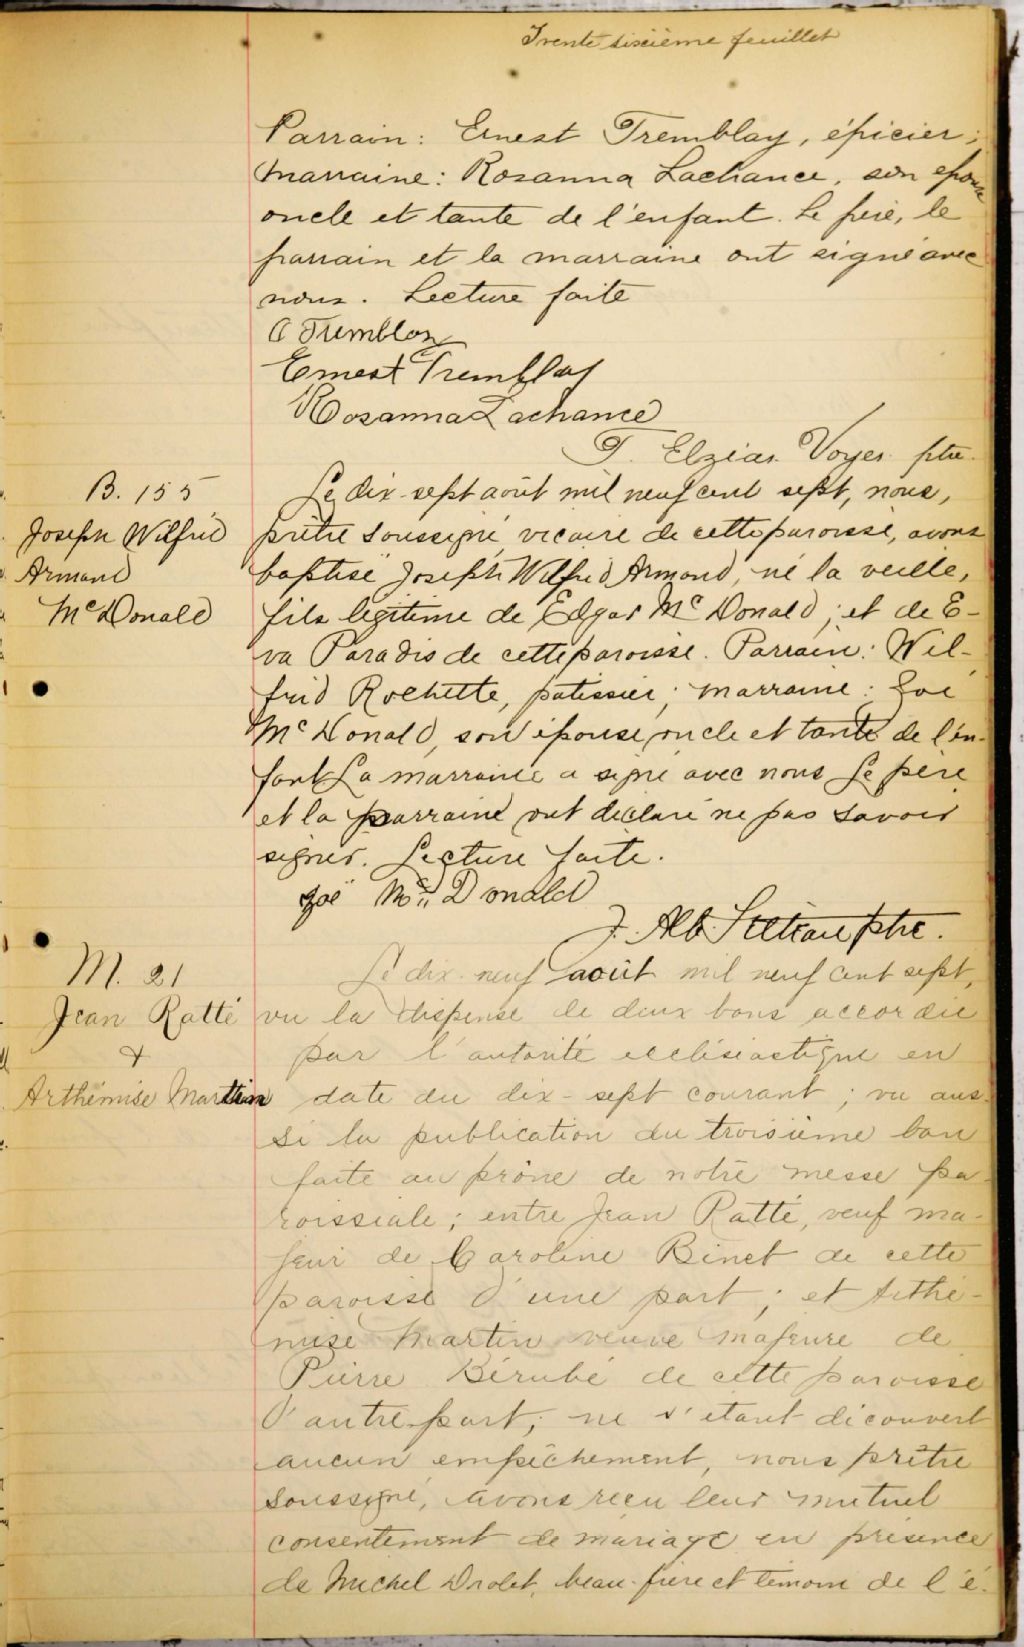 Trente sixième feuillet
Parrain: Ernest Tremblay, épicier;
marraine: Rosanna Lachance, son épouse
oncle et tante de l'enfant. Le père, le
parrain et la marraine ont signé avec
nous. Lecture faite
O Tremblay
Ernest Tremblay
Rosanna Lachance
T. Elzéar Voyer ptre.
B. 155
Joseph Wilfrid
Armand
McDonald
Le dix-sept août mil neuf cent sept, nous,
prêtre soussigné vicaire de cette paroisse, avons
baptisé Joseph Wilfrid Armand, né la veille,
fils légitime de Edgar McDonald; et de E-
va Paradis de cette paroisse. Parrain: Wil-
frid Rochette, patissier; marraine: Zoé
McDonald, son épouse, oncle et tante de l'en-
fant La marraine a signé avec nous Le père
et la parraine ont déclaré ne pas savoir
signer. Lecture faite.
Zoé Mc Donald
J. Alb. ptre.
M. 21
Jean Ratté
&
Arthémise Martin
Le dix-neuf août mil neuf cent sept,
vu la dispense de deux bans accordée
par l'autorité ecclésiastique en
date du dix-sept courant; vu aus-
si la publication du troisième ban
faite au prône de notre messe pa-
roissiale; entre Jean Ratté, veuf ma-
jeur de Caroline Binet de cette
paroisse d'une part; et Arthé-
mise Martin veuve majeure de
Pierre Bérubé de cette paroisse
d'autre part; ne s'étant découvert
aucun empêchement, nous prêtre
soussigné, avons reçu leur mutuel
consentement de mariage en présence
de Michel Drolet, beau-frère et témoin de l'é-